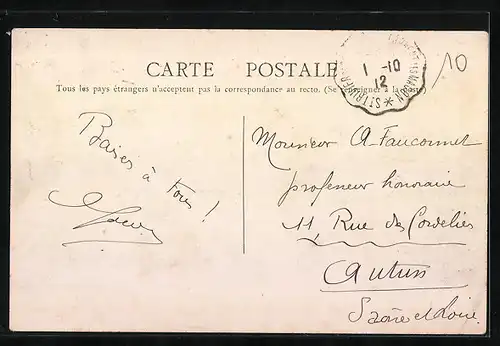 CARTE POSTALE
Tous les pays étrangers n'acceptent pas la correspondance au recto. (Se renseigner à la poste)
1 -10
12
10
Baisers à tous !
Monsieur A. Fauconnet
professeur honoraire
11, Rue des Cordeliers
Autun
Saône et Loire